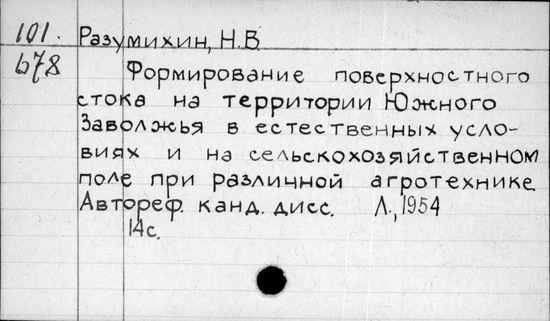 101.
678
Разумихин, Н.В
Формирование поверхностного
стока на территории Южного
Заволжья в естественных усло-
виях и на сельскохозяйственном
поле при различной агротехнике.
Автореф. канд. дисс. Л., 1954
14с.